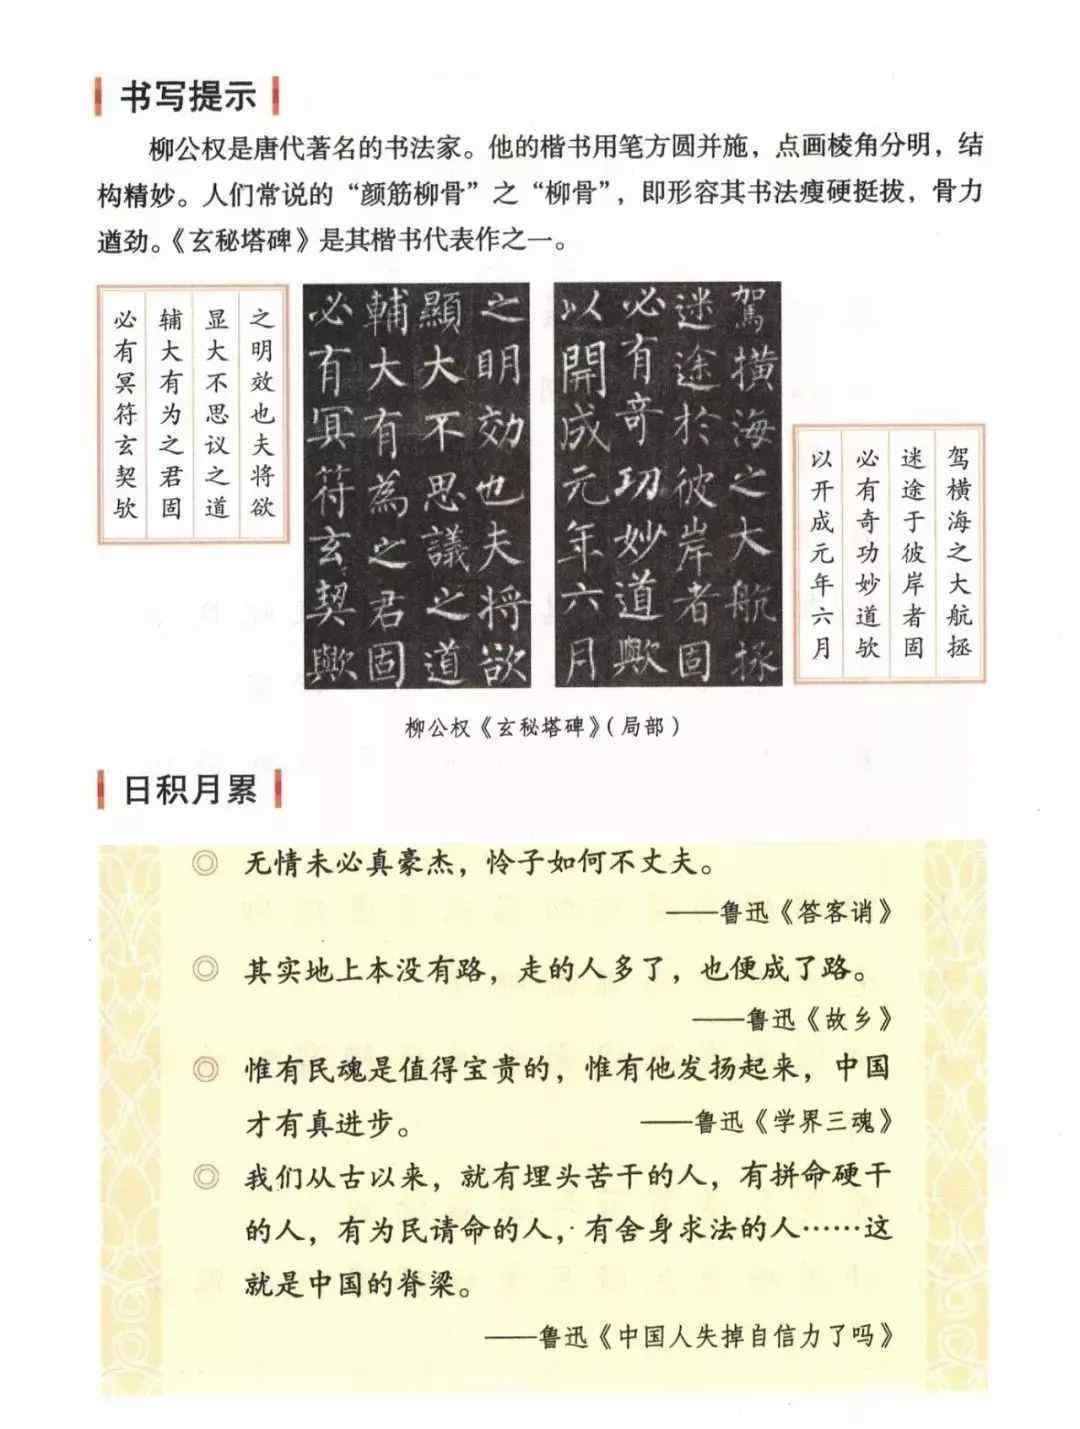 书写提示
柳公权是唐代著名的书法家。他的楷书用笔方圆并施，点画棱角分明，结
构精妙。人们常说的“颜筋柳骨”之“柳骨”，即形容其书法瘦硬挺拔，骨力
遒劲。《玄秘塔碑》是其楷书代表作之一。
驾横海之大航拯
迷途于彼岸者固
必有奇功妙道欤
以开成元年六月
駕横海之大航拯
迷途於彼岸者固
必有奇功妙道歟
以開成元年六月
之明効也夫将欲
顯大不思議之道
輔大有為之君固
必有冥符玄契歟
之明效也夫将欲
显大不思议之道
辅大有为之君固
必有冥符玄契欤
柳公权《玄秘塔碑》（局部）
日积月累
◎ 无情未必真豪杰，怜子如何不丈夫。
——鲁迅《答客诮》
◎ 其实地上本没有路，走的人多了，也便成了路。
——鲁迅《故乡》
◎ 惟有民魂是值得宝贵的，惟有他发扬起来，中国
才有真进步。 ——鲁迅《学界三魂》
◎ 我们从古以来，就有埋头苦干的人，有拼命硬干
的人，有为民请命的人，有舍身求法的人……这
就是中国的脊梁。
——鲁迅《中国人失掉自信力了吗》